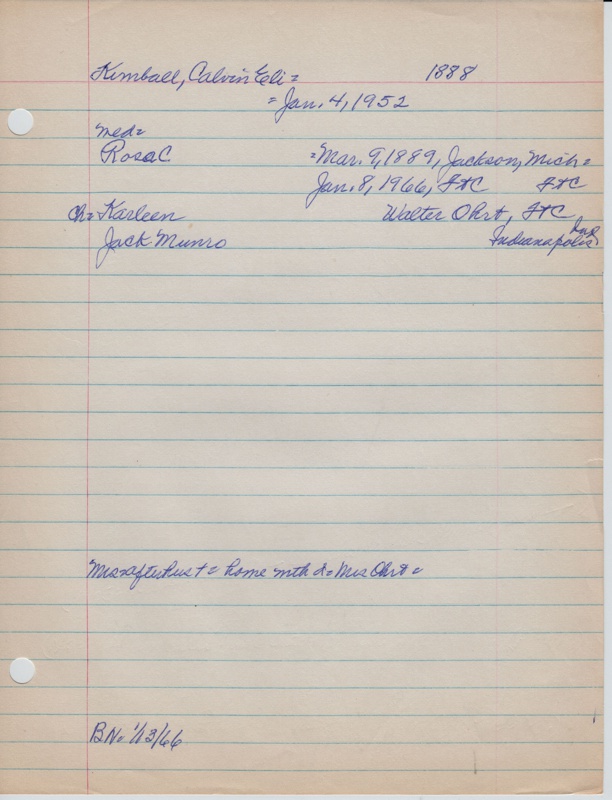 Kimball, Calvin Eli = 1888
= Jan. 4, 1952
med=
Rosa C = Mar. 9, 1889, Jackson, Mich =
Jan. 8, 1966, FtC FtC
Ch= Karleen Walter Ohrt, FtC
Jack Munro Indianapolis Ind
Mrs after hus t = home with d = Mrs Ohrt =
BN. 1/13/66